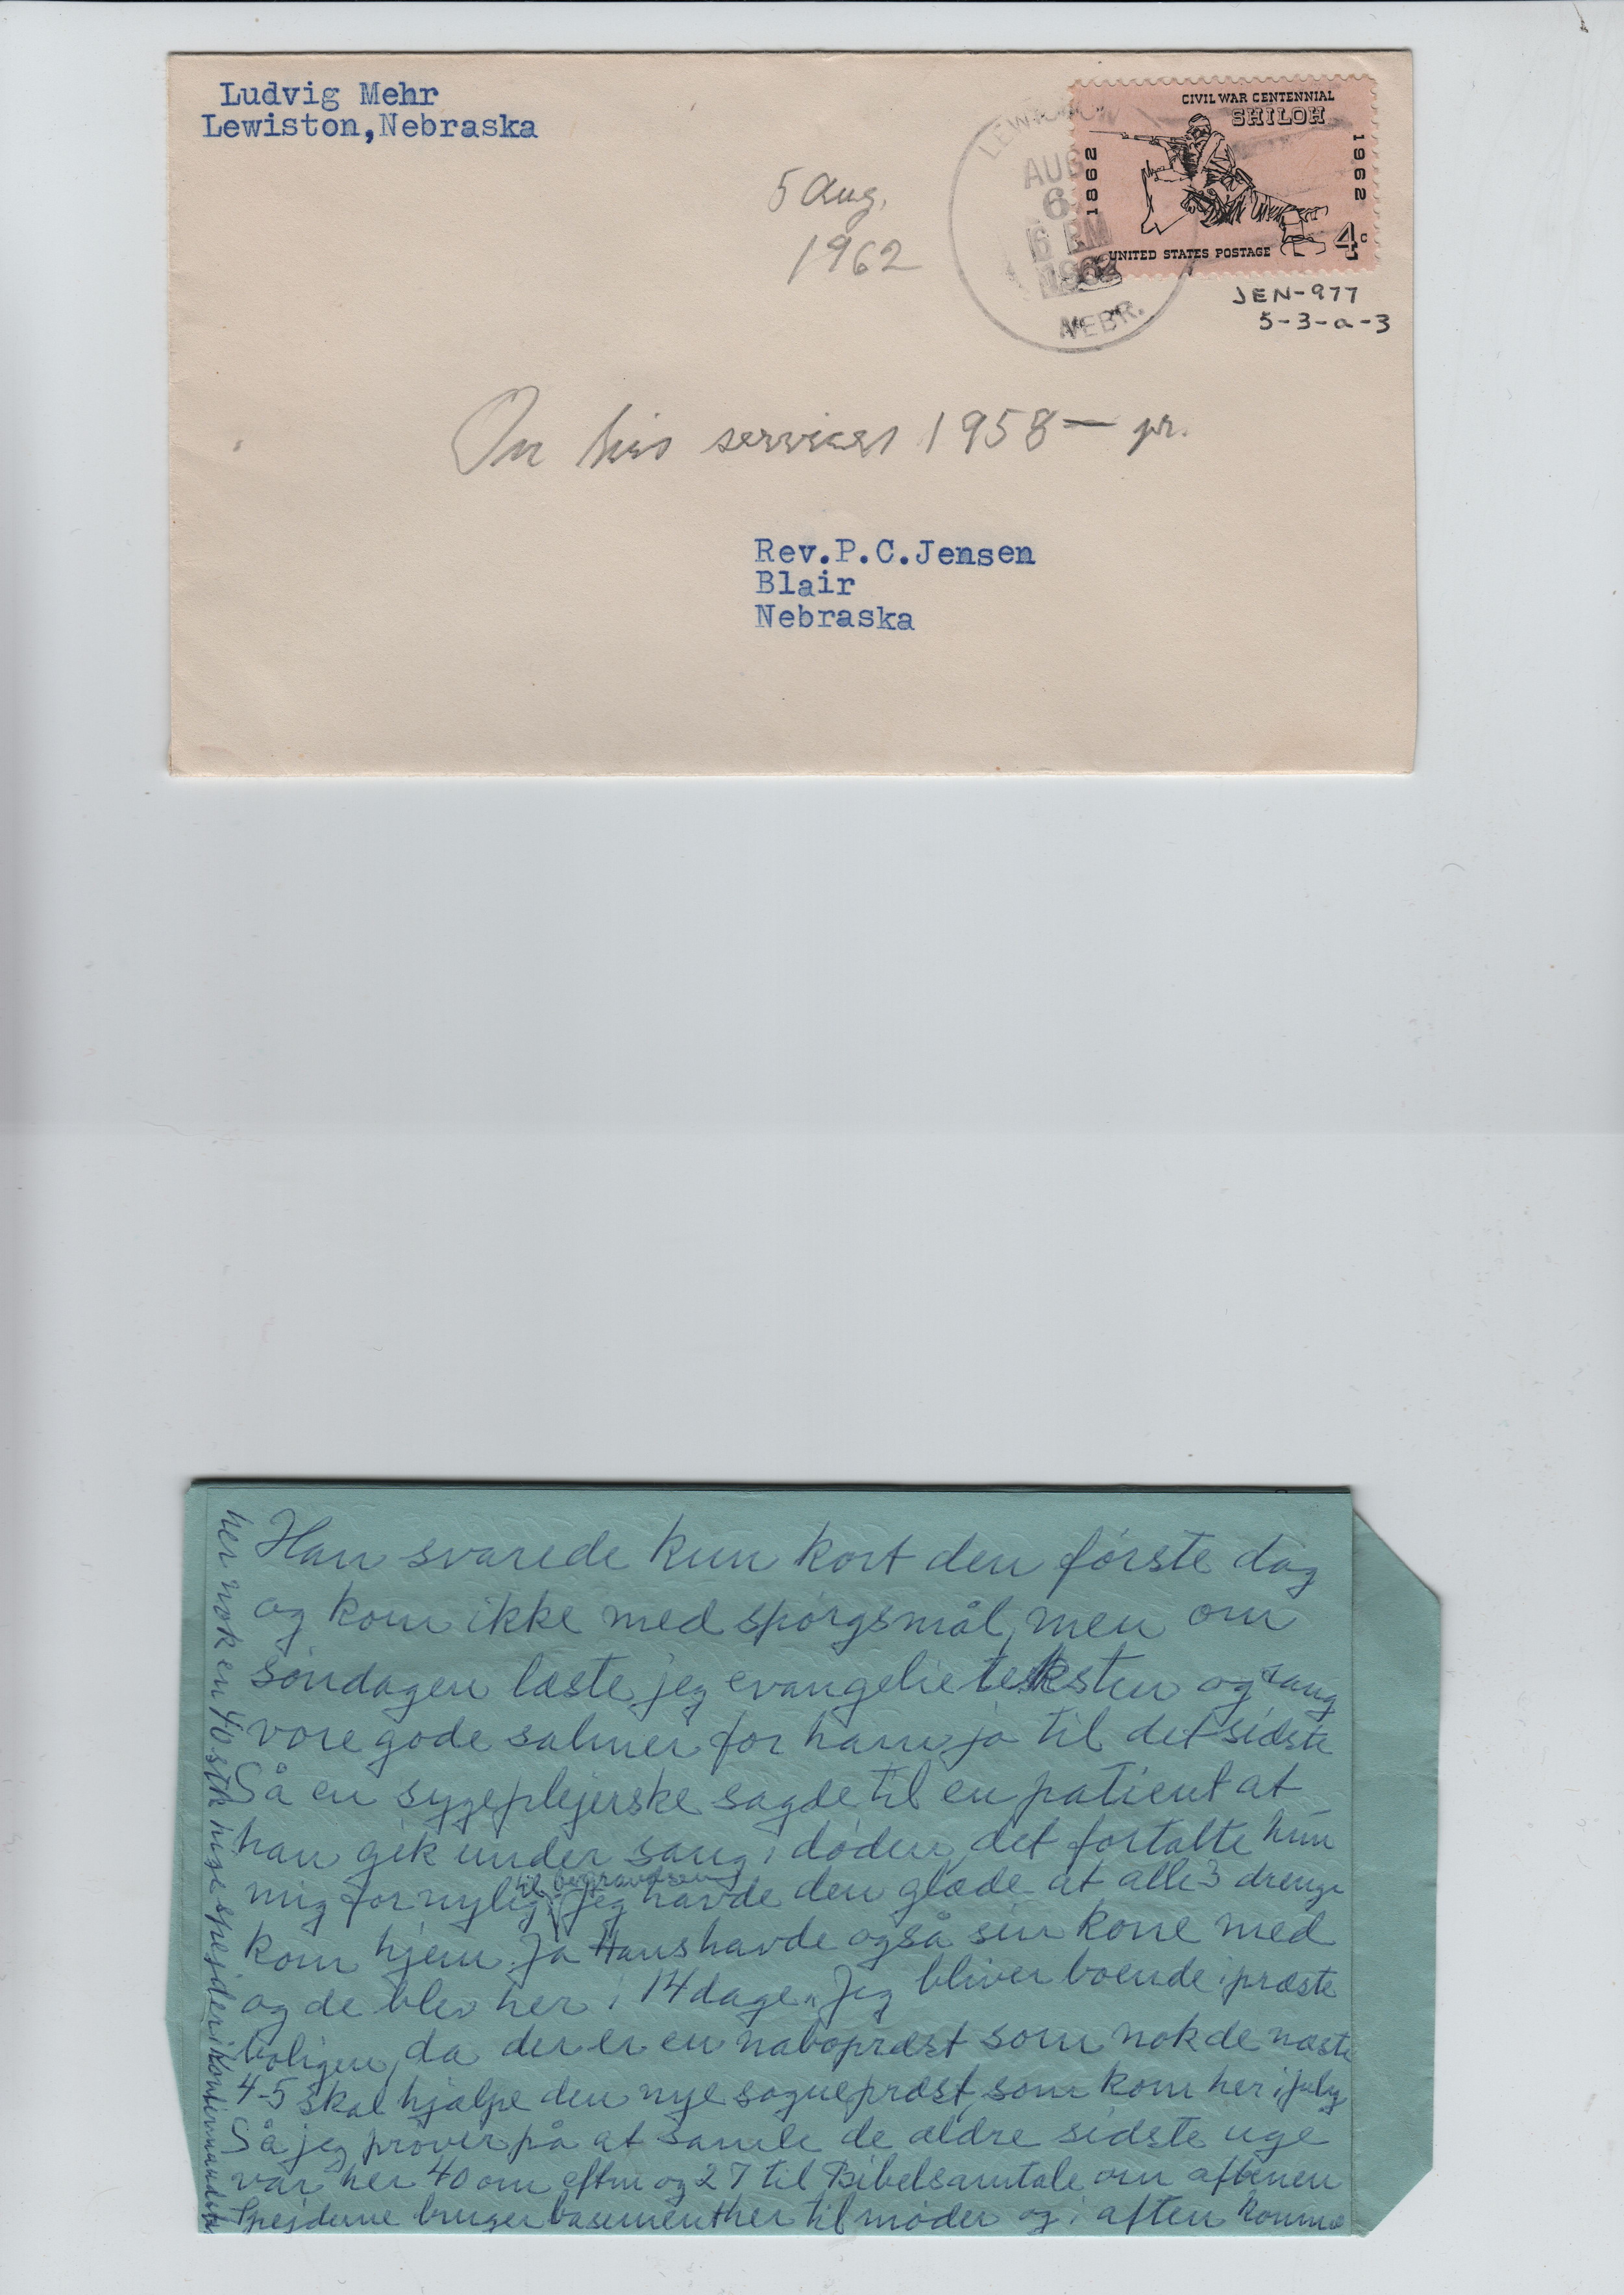 Ludvig Mehr
Lewiston, Nebraska
CIVIL WAR CENTENNIAL
SHILOH
1862
1962
UNITED STATES POSTAGE
4c
LEWISTON
AUG
6
6 PM
1962
NEBR.
5 Aug.
1962
JEN-977
5-3-a-3
On his services 1958— pr.
Rev.P.C.Jensen
Blair
Nebraska
Han svarede kun kort den første dag
og kom ikke med spørgsmål, men om
søndagen læste jeg evangelieteksten og sang
vore gode salmer for ham ja til det sidste
Så en sygeplejerske sagde til en patient at
han gik under sang i døden, det fortalte hun
mig for nylig. til begravelsen Jeg havde den glæde at alle 3 drenge
kom hjem. Ja Hans havde også sin kone med
og de blev her i 14 dage. Jeg bliver boende i præste
boligen, da der er en nabopræst som nok de næste
4-5 skal hjælpe den nye sognepræst, som kom her i july
Så jeg prøver på at samle de ældre sidste uge
var her 40 om eftm og 27 til Bibelsamtale om aftenen
Spejderne bruger basementher til møder og i aften komme
her nok en 40 stk